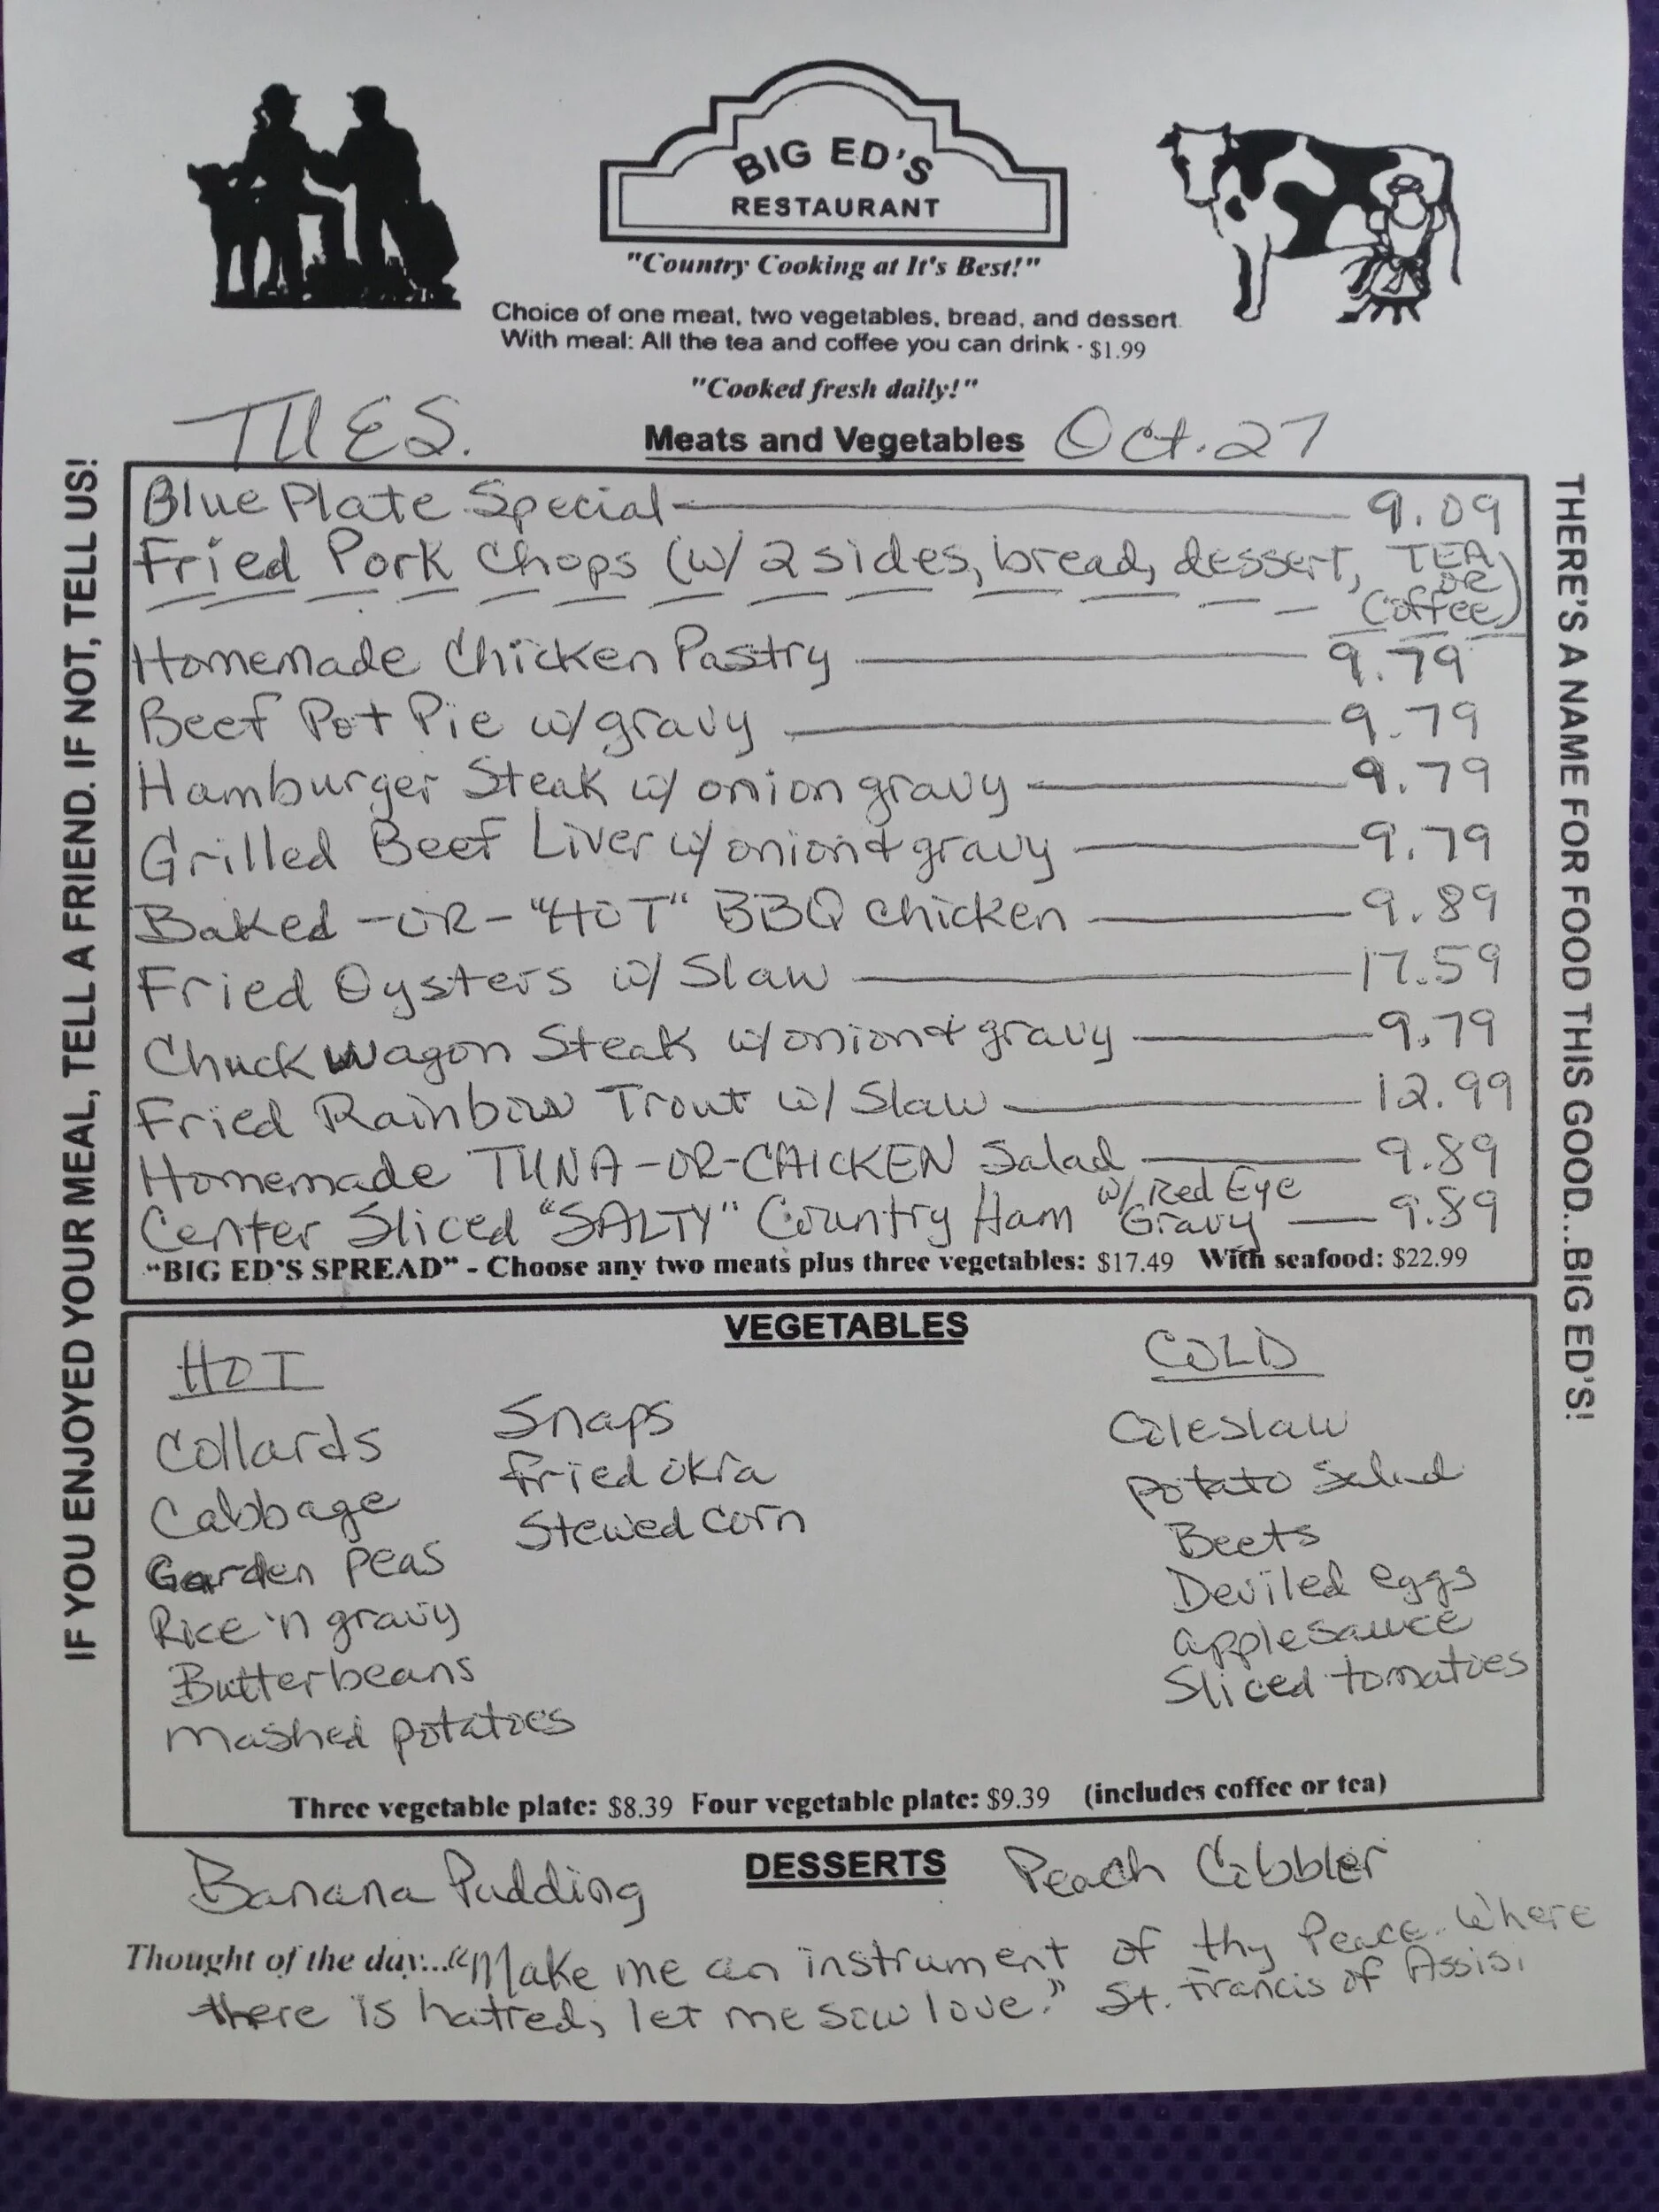 BIG ED'S
RESTAURANT
"Country Cooking at It's Best!"
Choice of one meat, two vegetables, bread, and dessert.
With meal: All the tea and coffee you can drink - $1.99
"Cooked fresh daily!"
TUES. Meats and Vegetables Oct. 27
Blue Plate Special 9.09
Fried Pork Chops (w/ 2 sides, bread, dessert, TEA
OR
Coffee)
Homemade Chicken Pastry 9.79
Beef Pot Pie w/gravy 9.79
Hamburger Steak w/ onion gravy 9.79
Grilled Beef Liver w/ onion & gravy 9.79
Baked -OR- "HOT" BBQ Chicken 9.89
Fried Oysters w/ Slaw 17.59
Chuck Wagon Steak w/ onion & gravy 9.79
Fried Rainbow Trout w/ Slaw 12.99
Homemade TUNA-OR-CHICKEN Salad 9.89
Center Sliced "SALTY" Country Ham w/ Red Eye Gravy 9.89
"BIG ED'S SPREAD" - Choose any two meats plus three vegetables: $17.49 With seafood: $22.99
IF YOU ENJOYED YOUR MEAL, TELL A FRIEND. IF NOT, TELL US!
THERE'S A NAME FOR FOOD THIS GOOD...BIG ED'S!
VEGETABLES
HOT
Collards
Cabbage
Garden Peas
Rice 'n gravy
Butterbeans
Mashed potatoes
Snaps
Fried okra
Stewed corn
COLD
Coleslaw
Potato Salad
Beets
Deviled eggs
applesauce
Sliced tomatoes
Three vegetable plate: $8.39 Four vegetable plate: $9.39 (includes coffee or tea)
Banana Pudding DESSERTS Peach Cobbler
Thought of the day..."Make me an instrument of thy Peace. Where
there is hatred, let me sow love." St. Francis of Assisi